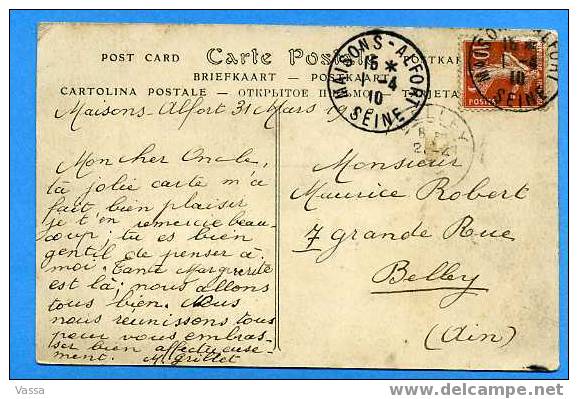 POST CARD Carte Postale
BRIEFKAART — POSTKAART
CARTOLINA POSTALE — ОТКРЫТОЕ
Maisons-Alfort 31 Mars 19
Mon cher Oncle,
ta jolie carte m'a
fait bien plaisir
je t'en remercie beau-
coup; tu es bien
gentil de penser à
moi. Tante Marguerite
est là; nous allons
tous bien. Nous
nous réunissons tous
pour vous embras-
ser bien affectueuse-
ment. M. Grillet
MAISONS-ALFORT
15 *
-4
10
SEINE
MAISONS-ALFORT
15
-4
10
SEINE
10
POSTES
BELLEY
Monsieur
Maurice Robert
7 grande Rue
Belley
(Ain)
Vassa
delcampe.net